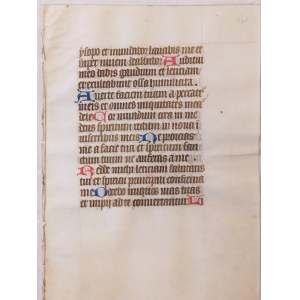 ysopo et mundabor lavabis me et
super nivem dealbabor Auditui
meo dabis gaudium et leticiam
et exultabunt ossa humiliata
Averte faciem tuam a peccatis
meis et omnes iniquitates meas
dele Cor mundum crea in me
deus et spiritum rectum in nova i
visceribus meis Ne proicias
me a facie tua et spiritum sanc
tum tuum ne auferas a me
Redde michi leticiam salutaris
tui et spiritu principali confirma
me Docebo iniquos vias tuas
et impii ad te convertentur Li